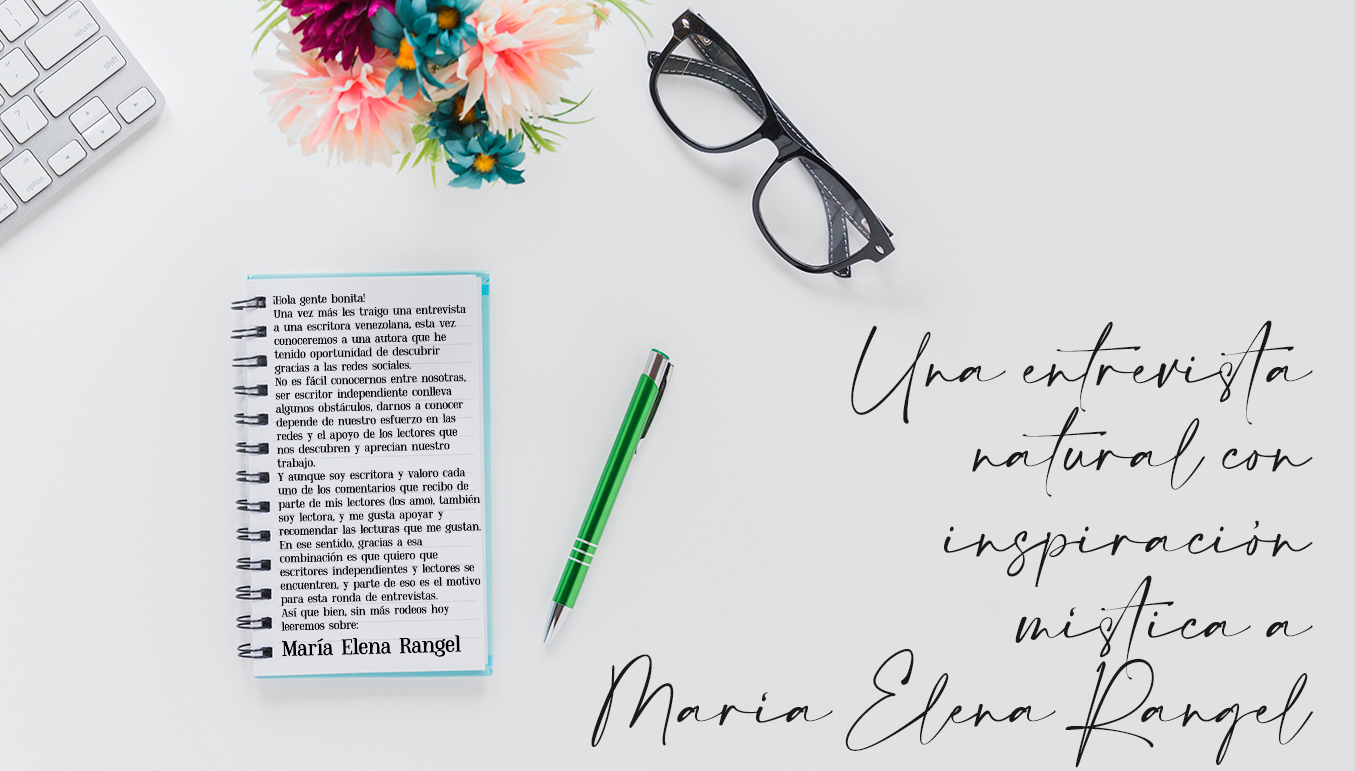 return
shift
option
¡Hola gente bonita!
Una vez más les traigo una entrevista
a una escritora venezolana, esta vez
conoceremos a una autora que he
tenido oportunidad de descubrir
gracias a las redes sociales.
No es fácil conocernos entre nosotras,
ser escritor independiente conlleva
algunos obstáculos, darnos a conocer
depende de nuestro esfuerzo en las
redes y el apoyo de los lectores que
nos descubren y aprecian nuestro
trabajo.
Y aunque soy escritora y valoro cada
uno de los comentarios que recibo de
parte de mis lectores (los amo), también
soy lectora, y me gusta apoyar y
recomendar las lecturas que me gustan.
En ese sentido, gracias a esa
combinación es que quiero que
escritores independientes y lectores se
encuentren, y parte de eso es el motivo
para esta ronda de entrevistas.
Así que bien, sin más rodeos hoy
leeremos sobre:
María Elena Rangel
Una entrevista
natural con
inspiración
mística a
María Elena Rangel